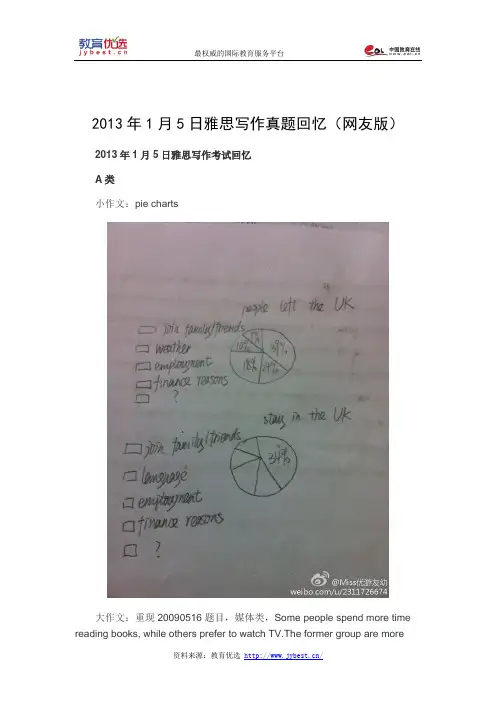 教育优选
jybest.cn
最权威的国际教育服务平台
eol 中国教育在线
www.eol.cn
2013年1月5日雅思写作真题回忆（网友版）
2013年1月5日雅思写作考试回忆
A类
小作文：pie charts
people left the UK
join family/friends
weather
employment
finance reasons
?
10%
18%
stay in the UK
join family/friends
language
employment
finance reasons
?
@Miss优游友幼
weibo.com/u/2311726674
大作文：重现20090516题目，媒体类，Some people spend more time
reading books, while others prefer to watch TV.The former group are more
资料来源：教育优选 http://www.jybest.cn/